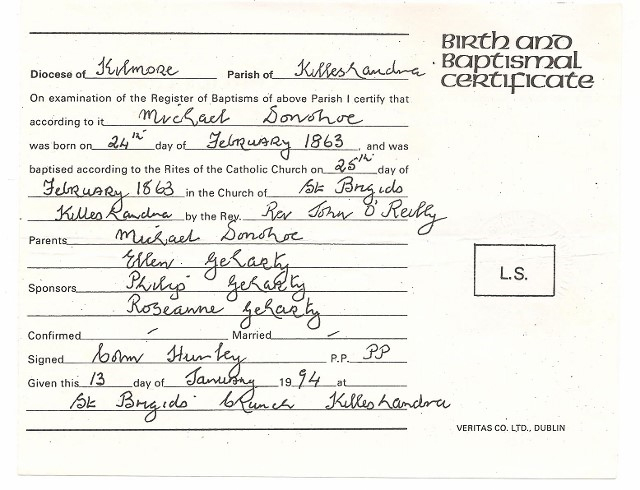 Birth and
Baptismal
Certificate
Diocese of Kilmore Parish of Killeshandra
On examination of the Register of Baptisms of above Parish I certify that
according to it Michael Donohoe
was born on 24th day of February 1863, and was
baptised according to the Rites of the Catholic Church on 25th day of
February 1863 in the Church of St Brigids
Killeshandra by the Rev. Rev John O'Reilly
Parents Michael Donohoe
Ellen Geharty
Sponsors Philip Geharty
Roseanne Geharty
Confirmed - Married -
Signed Colm Hurley P.P. PP
Given this 13 day of January 1994 at
St Brigids Church Killeshandra
L.S.
VERITAS CO. LTD., DUBLIN